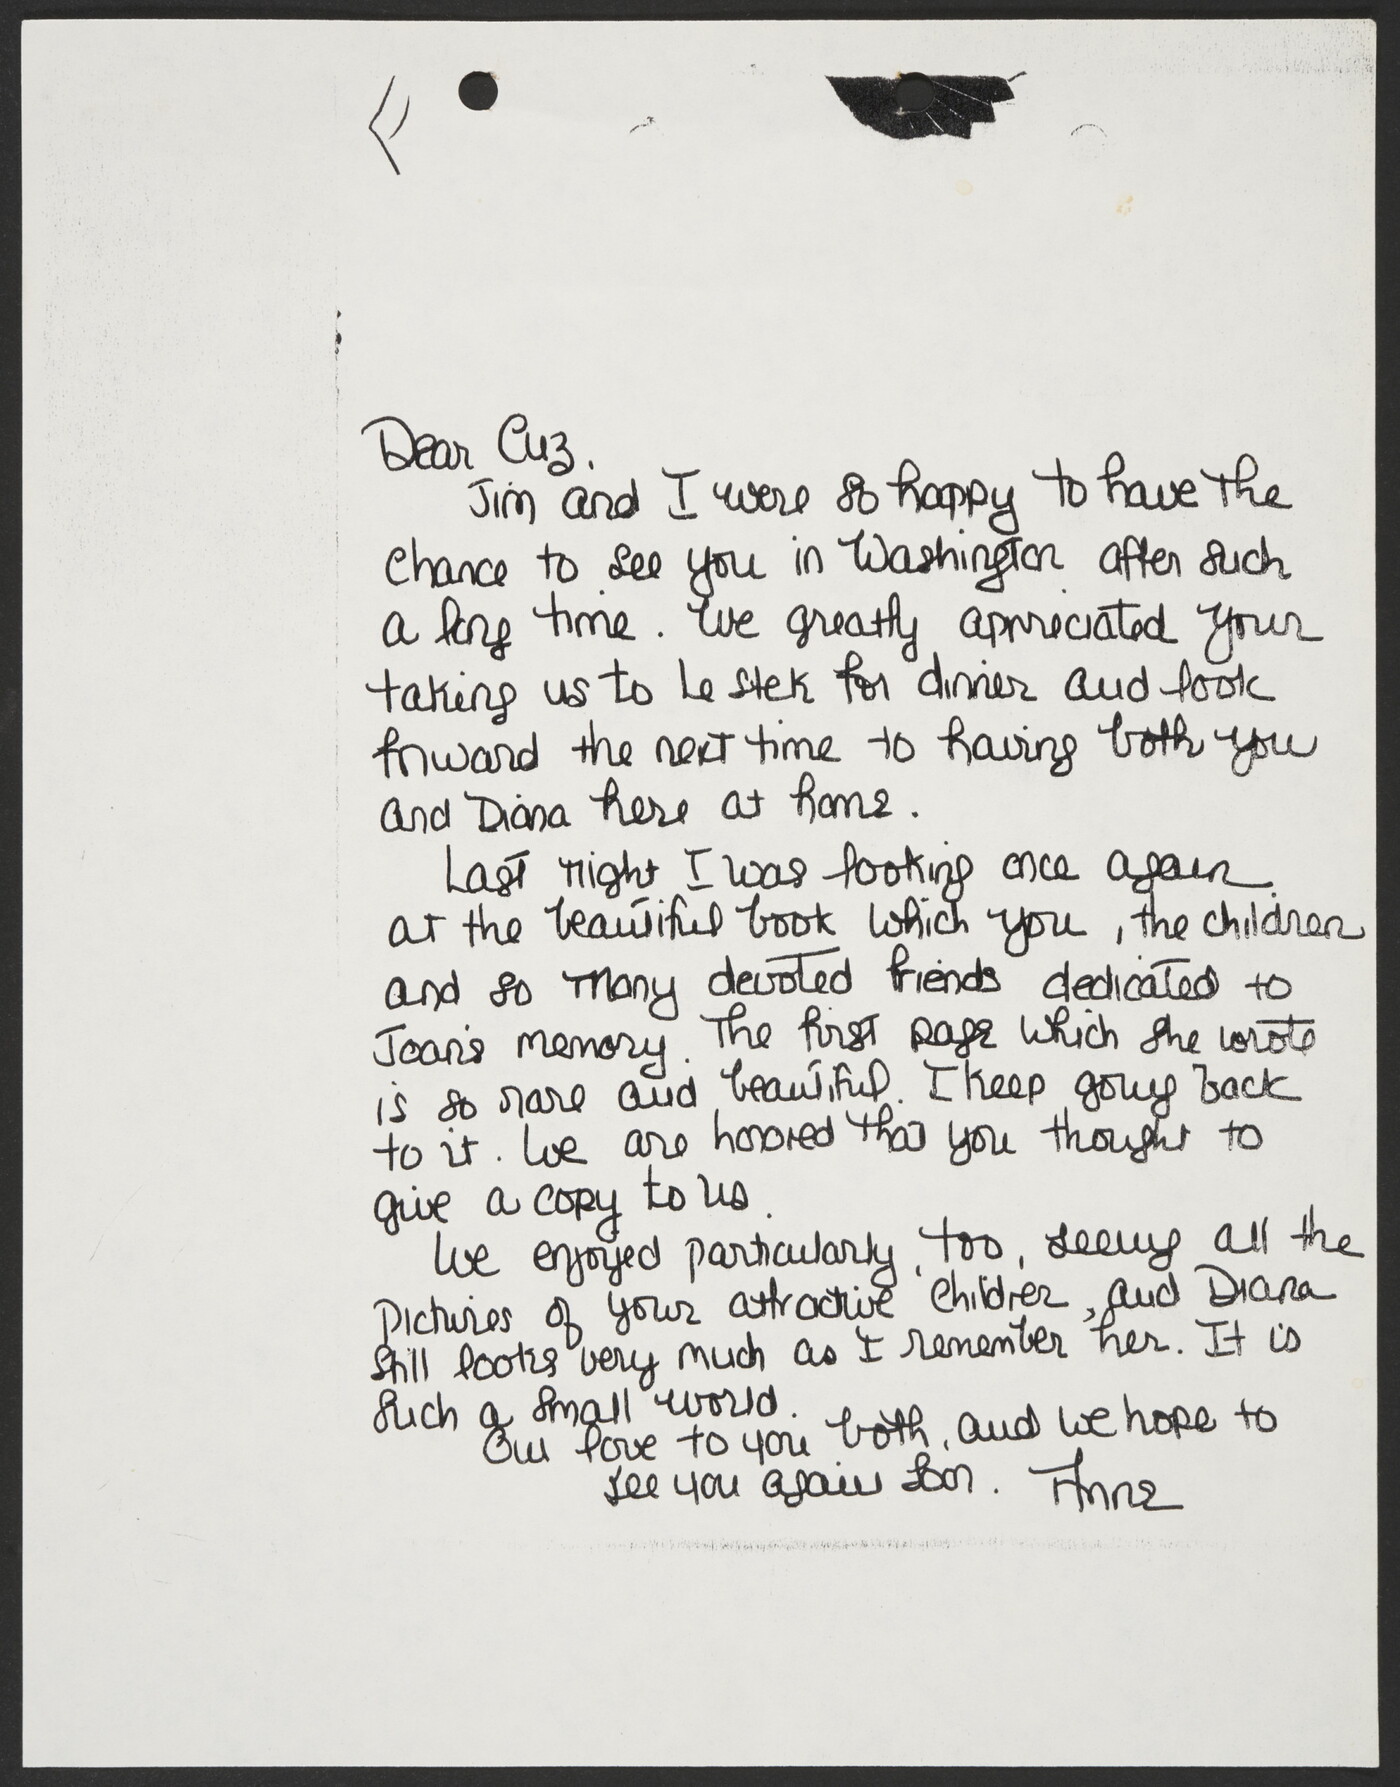 Dear Cuz.
Jim and I were so happy to have the
chance to see you in Washington after such
a long time. We greatly appreciated your
taking us to Le Stek for dinner and look
forward the next time to having both you
and Diana here at home.
Last night I was looking once again
at the beautiful book which you, the children
and so many devoted friends dedicated to
Joan's memory. The first page which she wrote
is so rare and beautiful. I keep going back
to it. We are honored that you thought to
give a copy to us.
We enjoyed particularly, too, seeing all the
pictures of your attractive children, and Diana
still looks very much as I remember her. It is
such a small world.
Our love to you both, and we hope to
see you again soon. Anne